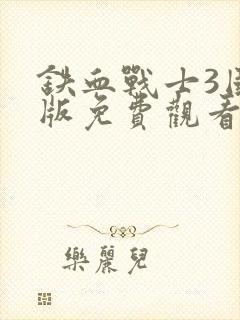 鉄血戰士3
版免費觀看
樂麗兒